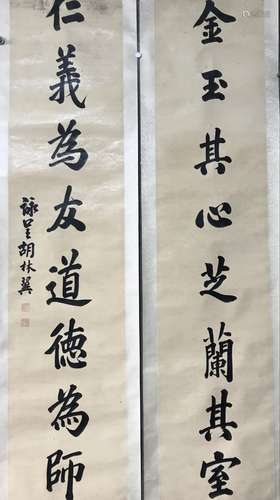 金玉其心芝蘭其室
仁義為友道德為師
詠芝胡林翼